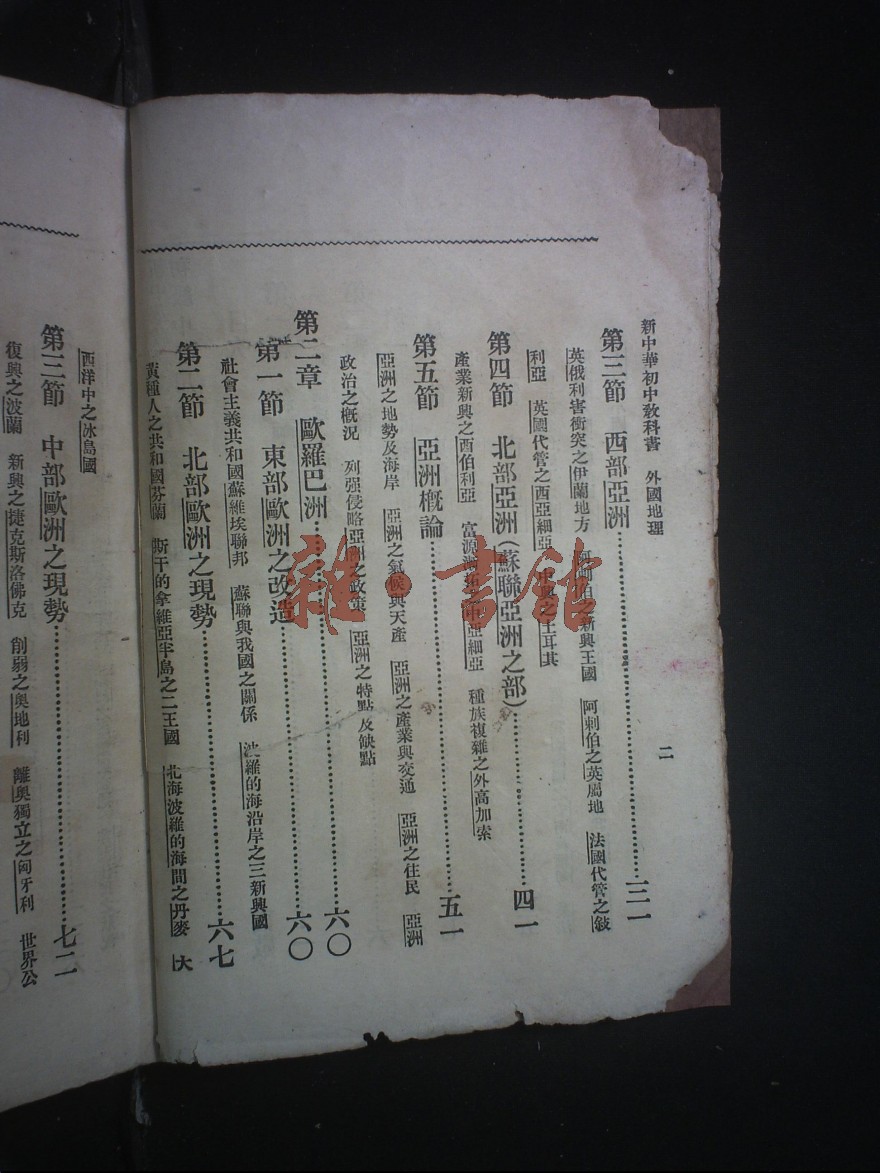 新中華初中教科書　外國地理
二
第三節　西部亞洲……三一
英俄利害衝突之伊蘭地方　阿剌伯之新興王國　阿剌伯之英屬地　法國代管之敍
利亞　英國代管之西亞細亞　中興之土耳其
第四節　北部亞洲（蘇聯亞洲之部）……四一
產業新興之西伯利亞　富源　中亞細亞　種族複雜之外高加索
第五節　亞洲概論……五一
亞洲之地勢及海岸　亞洲之氣候與天產　亞洲之產業與交通　亞洲之住民　亞洲
政治之概況　列强侵略亞洲之政策　亞洲之特點及缺點
第二章　歐羅巴洲……六〇
第一節　東部歐洲之改造……六〇
社會主義共和國蘇維埃聯邦　蘇聯與我國之關係　波羅的海沿岸之三新興國
第二節　北部歐洲之現勢……六七
黃種人之共和國芬蘭　斯干的拿維亞半島之二王國　北海波羅的海間之丹麥　大
西洋中之冰島國
第三節　中部歐洲之現勢……七二
復興之波蘭　新興之捷克斯洛佛克　削弱之奧地利　離奧獨立之匈牙利　世界公
雜·書館